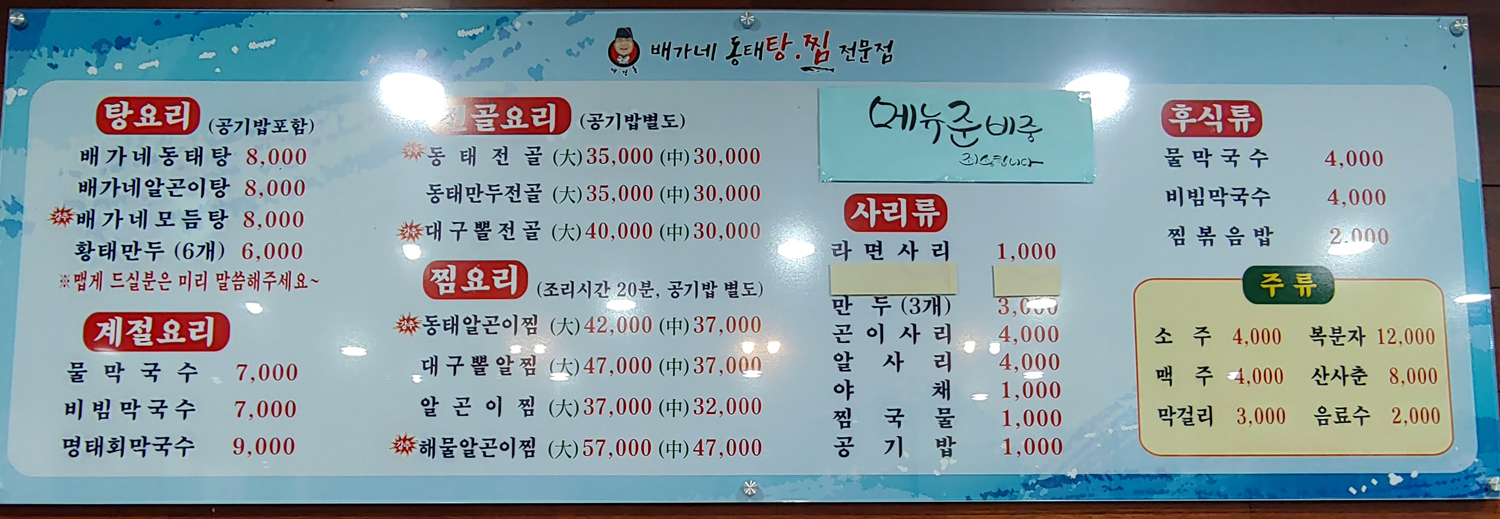 배가네 동태탕.찜 전문점
탕요리 (공기밥포함)
배가네동태탕 8,000
배가네알곤이탕 8,000
배가네모듬탕 8,000
황태만두 (6개) 6,000
※맵게 드실분은 미리 말씀해주세요~
계절요리
물막국수 7,000
비빔막국수 7,000
명태회막국수 9,000
전골요리 (공기밥별도)
동태전골 (大) 35,000 (中) 30,000
동태만두전골 (大) 35,000 (中) 30,000
대구뽈전골 (大) 40,000 (中) 30,000
찜요리 (조리시간 20분, 공기밥 별도)
동태알곤이찜 (大) 42,000 (中) 37,000
대구뽈알찜 (大) 47,000 (中) 37,000
알곤이찜 (大) 37,000 (中) 32,000
해물알곤이찜 (大) 57,000 (中) 47,000
메뉴준비중
죄송합니다
사리류
라면사리 1,000
만두 (3개) 3,000
곤이사리 4,000
알사리 4,000
야채 1,000
찜국물 1,000
공기밥 1,000
후식류
물막국수 4,000
비빔막국수 4,000
찜볶음밥 2,000
주류
소주 4,000 복분자 12,000
맥주 4,000 산사춘 8,000
막걸리 3,000 음료수 2,000